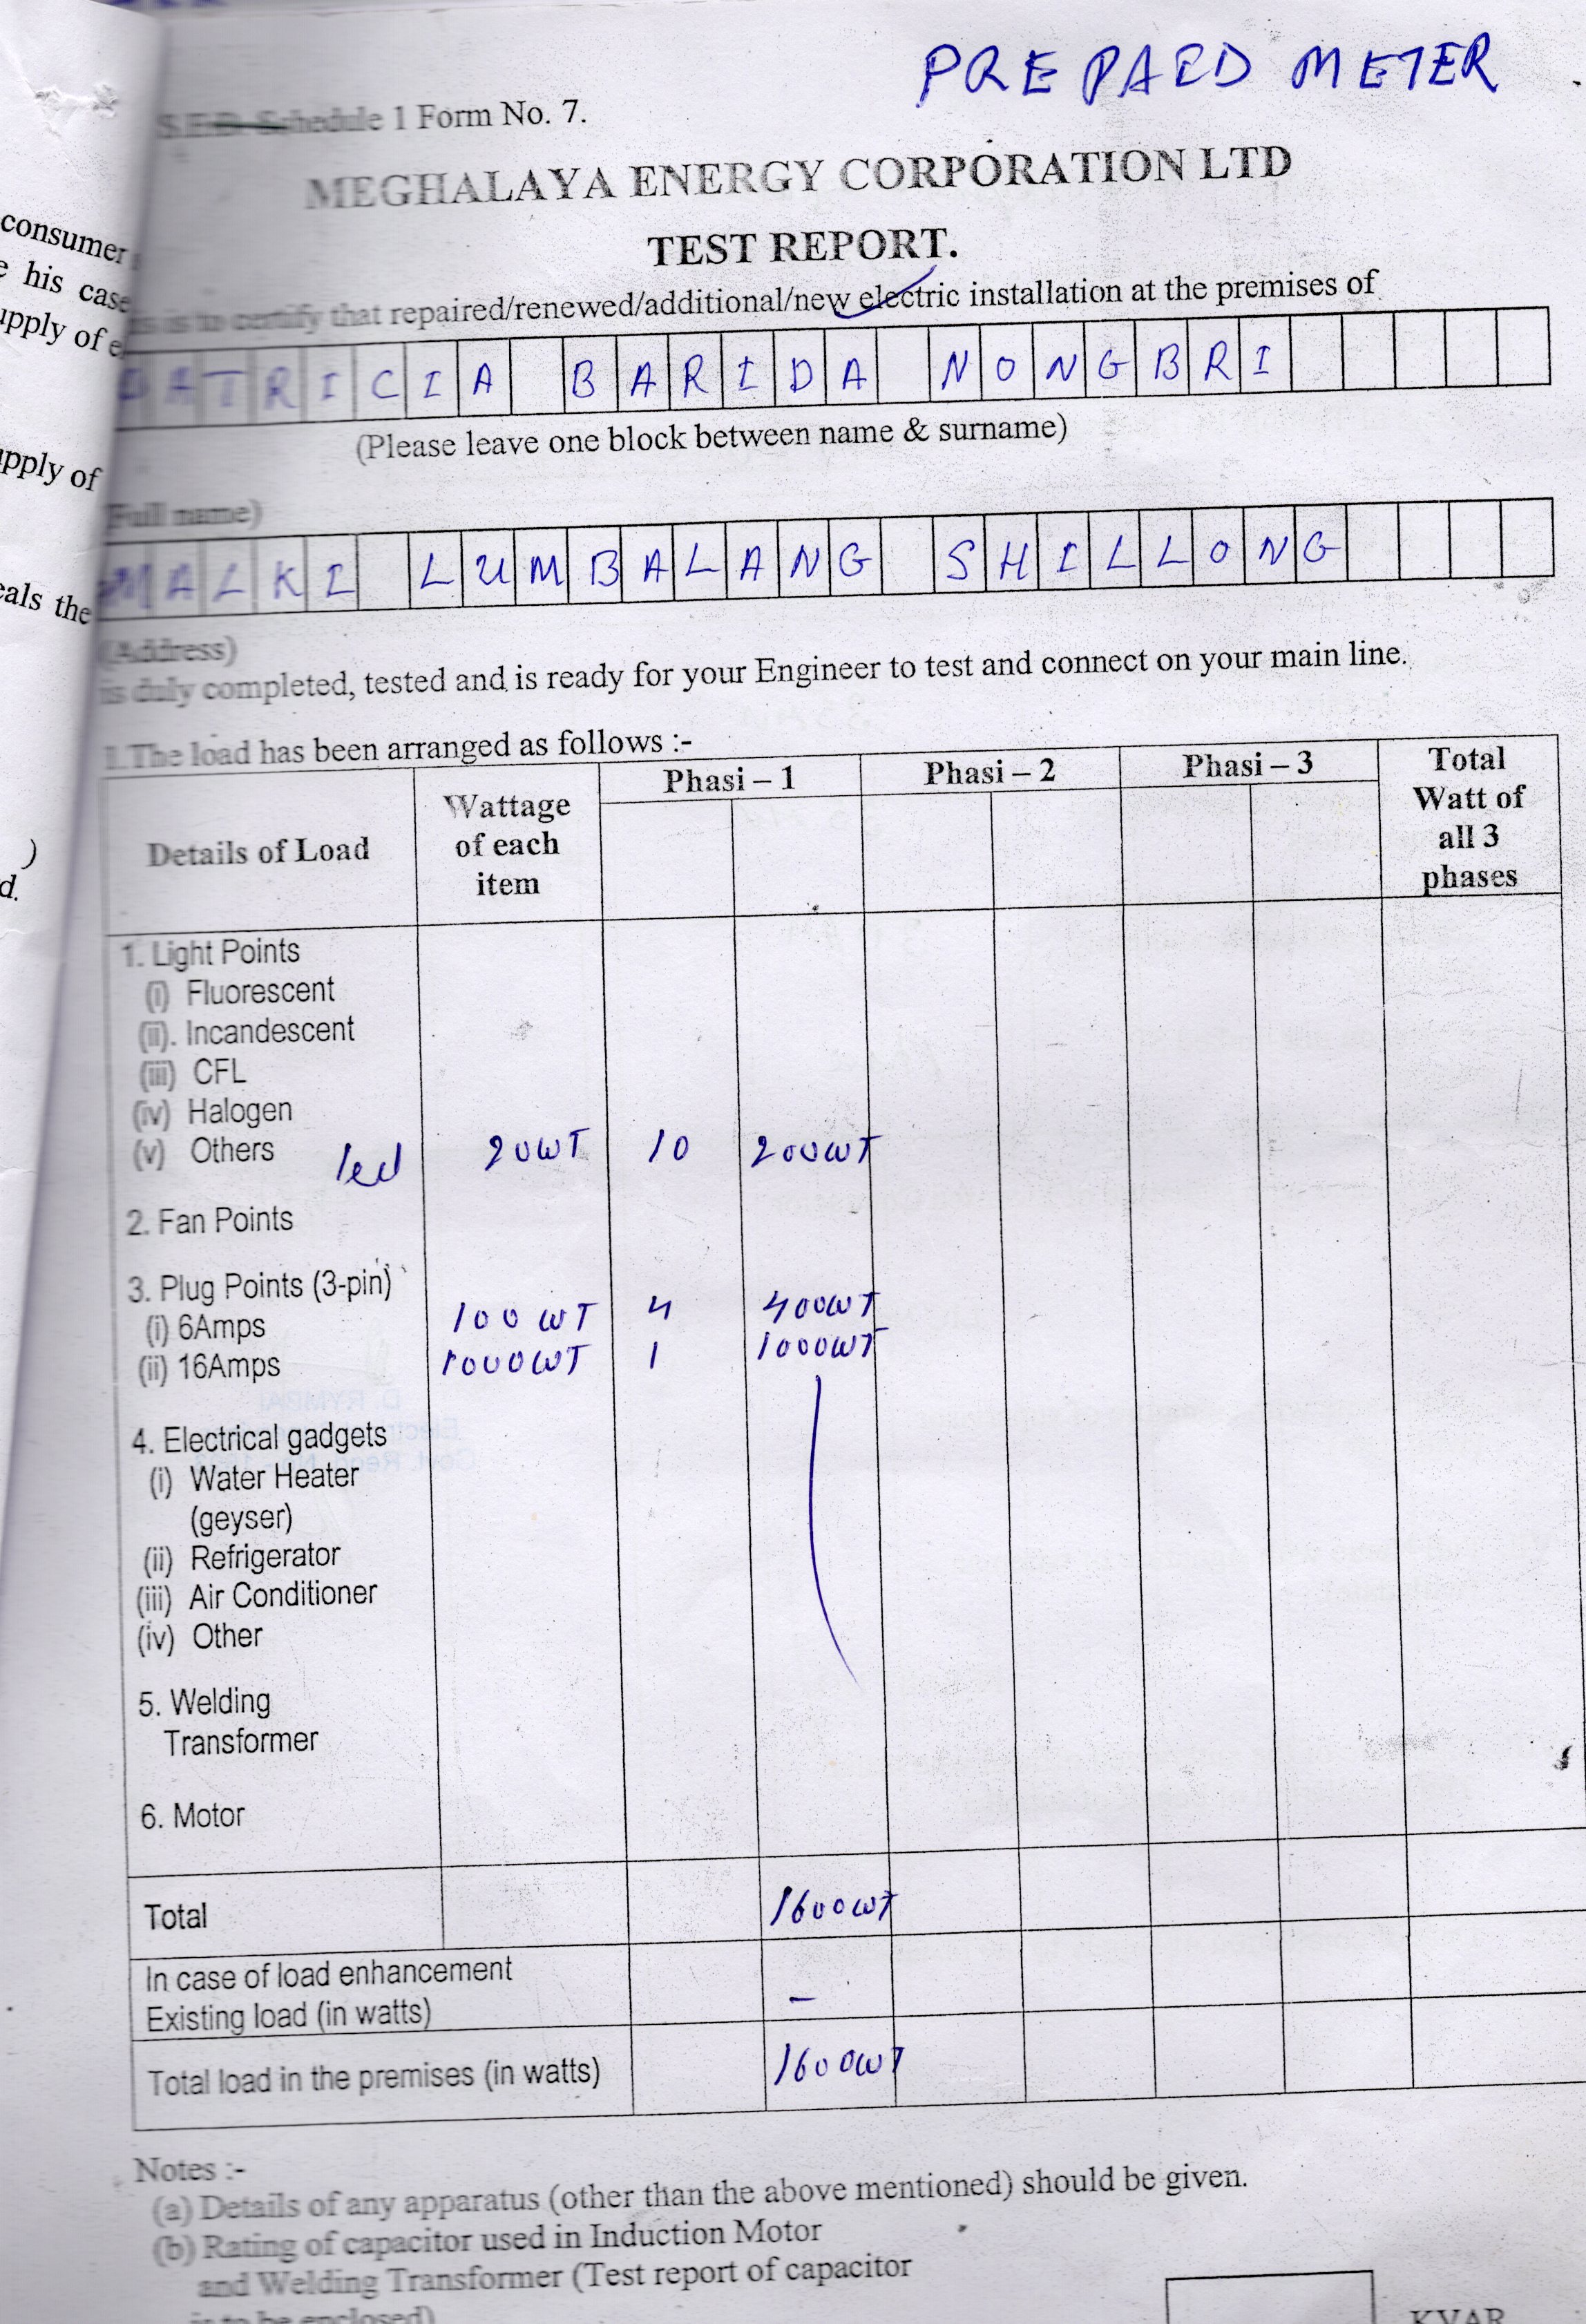 PREPAED METER
S.E.B. Schedule 1 Form No. 7.
MEGHALAYA ENERGY CORPORATION LTD
TEST REPORT.
is to certify that repaired/renewed/additional/new electric installation at the premises of
PATRICIA BARIDA NONGBRI
(Please leave one block between name & surname)
(Full name)
MALKI LUMBALANG SHILLONG
(Address)
is duly completed, tested and is ready for your Engineer to test and connect on your main line.
1.The load has been arranged as follows :-
Details of Load Wattage of each item Phasi – 1 Phasi – 2 Phasi – 3 Total Watt of all 3 phases
1. Light Points
(i) Fluorescent
(ii). Incandescent
(iii) CFL
(iv) Halogen
(v) Others led 20WT 10 200WT
2. Fan Points
3. Plug Points (3-pin)
(i) 6Amps 100 WT 4 400WT
(ii) 16Amps 1000WT 1 1000WT
4. Electrical gadgets
(i) Water Heater
(geyser)
(ii) Refrigerator
(iii) Air Conditioner
(iv) Other
5. Welding
Transformer
6. Motor
Total 1600WT
In case of load enhancement
Existing load (in watts) –
Total load in the premises (in watts) 1600WT
Notes :-
(a) Details of any apparatus (other than the above mentioned) should be given.
(b) Rating of capacitor used in Induction Motor
and Welding Transformer (Test report of capacitor
is to be enclosed)
KVAR
consumer
his case
upply of
upply of
eals the
)
d.